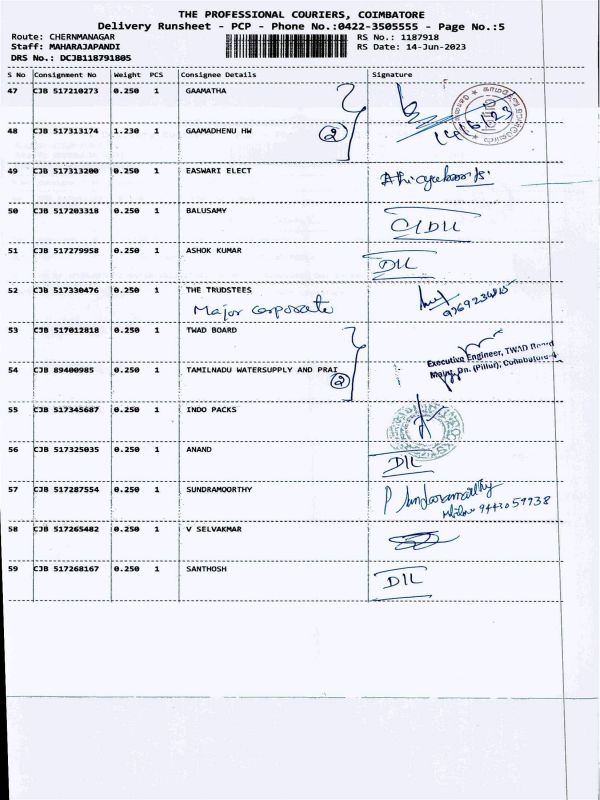 THE PROFESSIONAL COURIERS, COIMBATORE
Delivery Runsheet - PCP - Phone No.:0422-3505555 - Page No.:5
Route: CHERNMANAGAR RS No.: 1187918
Staff: MAHARAJAPANDI RS Date: 14-Jun-2023
DRS No.: DCJB118791805
S No Consignment No Weight PCS Consignee Details Signature
47 CJB 517210273 0.250 1 GAAMATHA
48 CJB 517313174 1.230 1 GAAMADHENU HW 2 14/6/23
49 CJB 517313200 0.250 1 EASWARI ELECT
50 CJB 517203318 0.250 1 BALUSAMY
51 CJB 517279958 0.250 1 ASHOK KUMAR DIL
52 CJB 517330476 0.250 1 THE TRUDSTEES
Major corporate
53 CJB 517012818 0.250 1 TWAD BOARD
Executive Engineer, TWAD Board
54 CJB 89400985 0.250 1 TAMILNADU WATERSUPPLY AND PRAI 2 Dn. (Pillur), Coimbatore-4
55 CJB 517345687 0.250 1 INDO PACKS
56 CJB 517325035 0.250 1 ANAND DIL
57 CJB 517287554 0.250 1 SUNDRAMOORTHY P Sundaramoorthy
58 CJB 517265482 0.250 1 V SELVAKMAR
59 CJB 517268167 0.250 1 SANTHOSH DIL